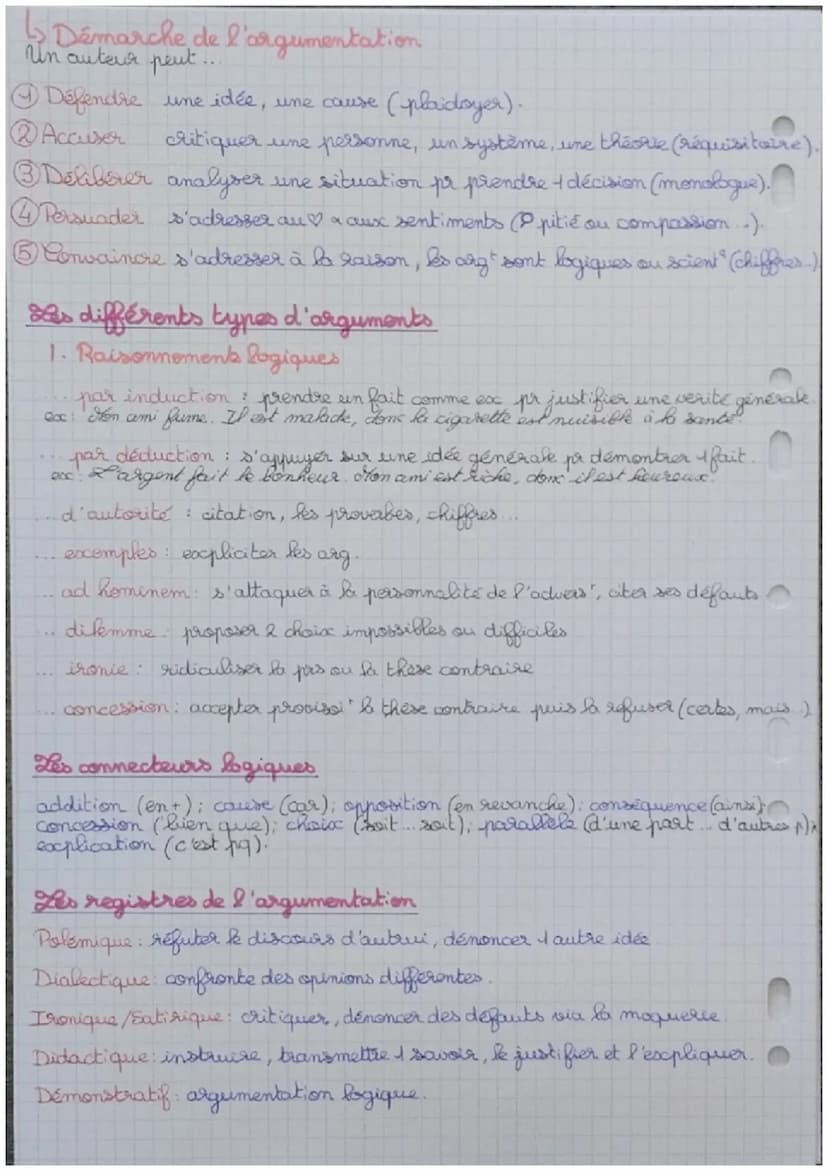 ↳ Démarche de l'argumentation
Un auteur peut ...
① Défendre une idée, une cause (plaidoyer).
② Accuser critiquer une personne, un système, une théorie (réquisitoire).
③ Délibérer analyser une situation pr prendre 1 décision (monologue).
④ Persuader s'adresser au ♡ & aux sentiments (P pitié ou compassion ..).
⑤ Convaincre s'adresser à la raison, les argᵗ sont logiques ou scientᶠ (chiffres..)
Les différents types d'arguments
1. Raisonnements logiques
... par induction : prendre un fait comme ex pr justifier une vérité générale.
ex: Mon ami fume. Il est malade, donc la cigarette est nuisible à la santé.
... par déduction : s'appuyer sur une idée générale pr démontrer 1 fait.
ex: L'argent fait le bonheur. Mon ami est riche, donc il est heureux.
... d'autorité : citation, les proverbes, chiffres ...
... exemples : expliciter les arg.
... ad hominem : s'attaquer à la personnalité de l'adversʳ, citer ses défauts
... dilemme : proposer 2 choix impossibles ou difficiles
... ironie : ridiculiser la prs ou la thèse contraire
... concession : accepter provisoiᵗ la thèse contraire puis la refuser (certes, mais ..)
Les connecteurs logiques
addition (en +); cause (car); opposition (en revanche); conséquence (ainsi);
concession (bien que); choix (soit ... soit); parallèle (d'une part ... d'autres p);
explication (c'est pq).
Les registres de l'argumentation
Polémique : réfuter le discours d'autrui, dénoncer 1 autre idée
Dialectique : confronte des opinions différentes.
Ironique/Satirique : critiquer, dénoncer des défauts via la moquerie.
Didactique : instruire, transmettre 1 savoir, le justifier et l'expliquer.
Démonstratif : argumentation logique.